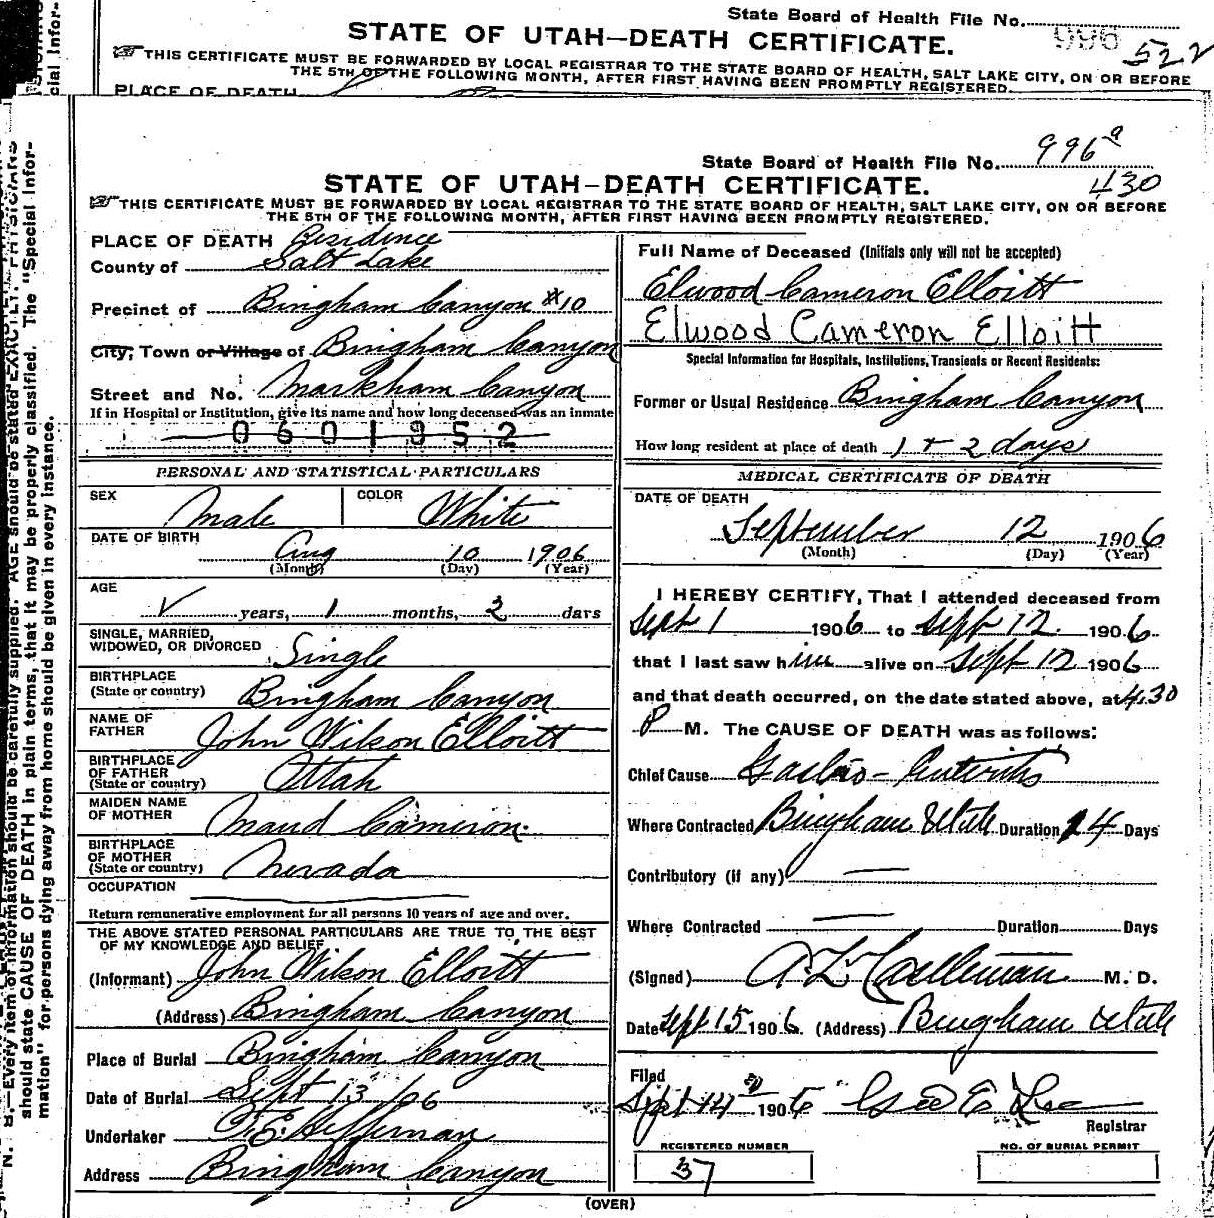 State Board of Health File No. 996 522
STATE OF UTAH—DEATH CERTIFICATE.
THIS CERTIFICATE MUST BE FORWARDED BY LOCAL REGISTRAR TO THE STATE BOARD OF HEALTH, SALT LAKE CITY, ON OR BEFORE
THE 5TH OF THE FOLLOWING MONTH, AFTER FIRST HAVING BEEN PROMPTLY REGISTERED.
PLACE OF DEATH
State Board of Health File No. 996a
430
STATE OF UTAH—DEATH CERTIFICATE.
THIS CERTIFICATE MUST BE FORWARDED BY LOCAL REGISTRAR TO THE STATE BOARD OF HEALTH, SALT LAKE CITY, ON OR BEFORE
THE 5TH OF THE FOLLOWING MONTH, AFTER FIRST HAVING BEEN PROMPTLY REGISTERED.
PLACE OF DEATH Residence
County of Salt Lake
Precinct of Bingham Canyon #10
City, Town or Village of Bingham Canyon
Street and No. Markham Canyon
If in Hospital or Institution, give its name and how long deceased was an inmate
0601952
PERSONAL AND STATISTICAL PARTICULARS
SEX Male COLOR White
DATE OF BIRTH Aug 10 1906
(Month) (Day) (Year)
AGE
years, 1 months, 2 days
SINGLE, MARRIED,
WIDOWED, OR DIVORCED Single
BIRTHPLACE
(State or country) Bingham Canyon
NAME OF
FATHER John Wilson Elloitt
BIRTHPLACE
OF FATHER
(State or country) Utah
MAIDEN NAME
OF MOTHER Maud Cameron
BIRTHPLACE
OF MOTHER
(State or country) Nevada
OCCUPATION
Return remunerative employment for all persons 10 years of age and over.
THE ABOVE STATED PERSONAL PARTICULARS ARE TRUE TO THE BEST
OF MY KNOWLEDGE AND BELIEF
(Informant) John Wilson Elloitt
(Address) Bingham Canyon
Place of Burial Bingham Canyon
Date of Burial Sept 13/06
Undertaker T. E. Heffernan
Address Bingham Canyon
Full Name of Deceased (Initials only will not be accepted)
Elwood Cameron Elloitt
Elwood Cameron Elloitt
Special Information for Hospitals, Institutions, Transients or Recent Residents:
Former or Usual Residence Bingham Canyon
How long resident at place of death 1 + 2 days
MEDICAL CERTIFICATE OF DEATH
DATE OF DEATH
September 12 1906
(Month) (Day) (Year)
I HEREBY CERTIFY, That I attended deceased from
Sept 1 1906 to Sept 12 1906
that I last saw him alive on Sept 12 1906
and that death occurred, on the date stated above, at 4.30
P M. The CAUSE OF DEATH was as follows:
Chief Cause Gastro-Enteritis
Where Contracted Bingham Utah Duration 14 Days
Contributory (if any)
Where Contracted Duration Days
(Signed) M. D.
Date Sept 15 1906. (Address) Bingham Utah
Filed
Sept 14 1906 Geo E Lee
Registrar
REGISTERED NUMBER NO. OF BURIAL PERMIT
37
(OVER)
N. B.—Every item of information should be carefully supplied. AGE should be stated EXACTLY. PHYSICIANS
should state CAUSE OF DEATH in plain terms, that it may be properly classified. The "Special Infor-
mation" for persons dying away from home should be given in every instance.
cial Infor-